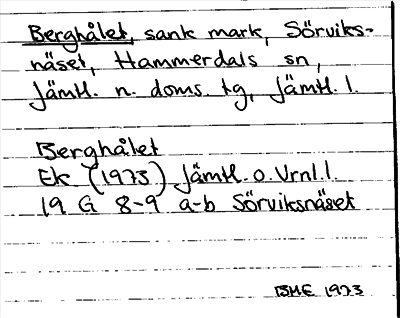 Berghålet, sank mark, Sörviks-
näset, Hammerdals sn,
Jämtl. n. doms. tg, Jämtl. l.
Berghålet
Ek (1973) Jämtl. o. Vrnl. l.
19 G 8-9 a-b Sörviksnäset
BME 1973